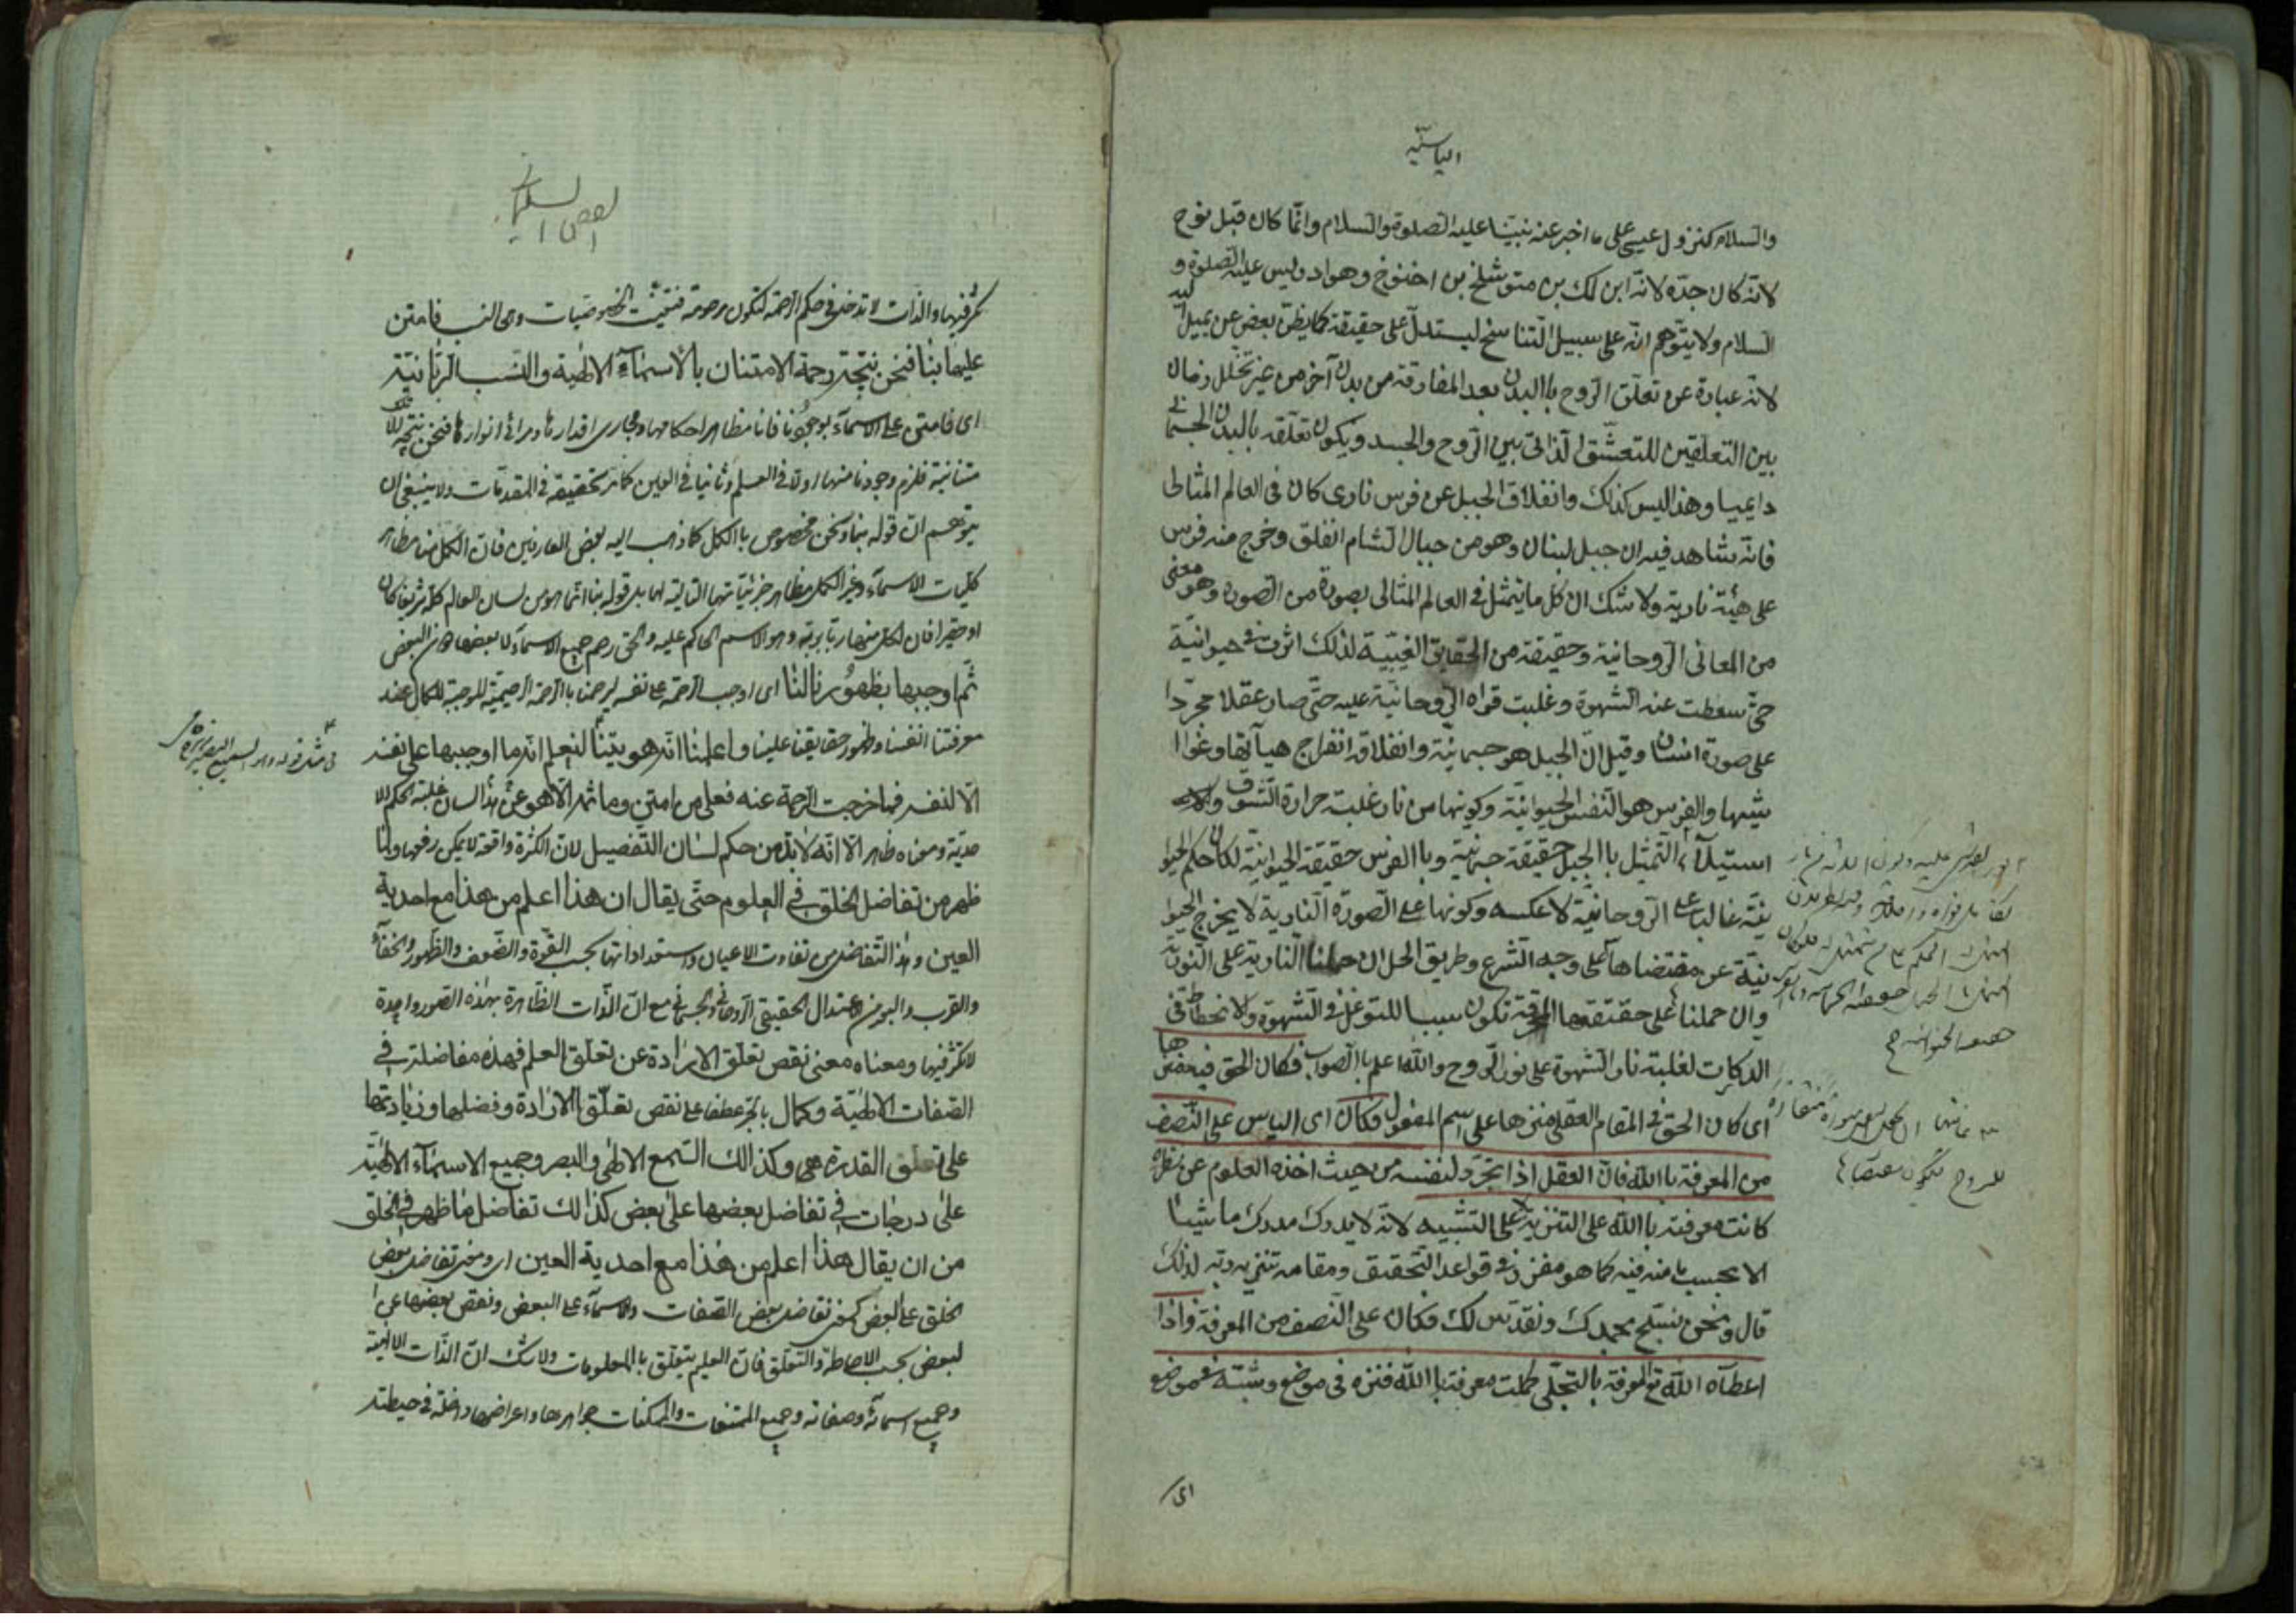 الياسيّة
والسلام كنزول عيسى على ما اخبر عنه نبيّنا عليه الصلوة والسلام وانّما كان قبل نوح
لانّه كان جدّه لانّه ابن لمك بن متوشلخ بن اخنوخ وهو ادريس عليه الصلوة و
السلام ولا يتوهم انّه على سبيل التناسخ ليستدلّ على حقيقته كما يظنّ بعض من يميل اليه
لانّه عبارة عن تعلّق الروح باالبدن بعد المفارقة من بدن آخر من غير تخلل زمان
بين التعلقين للتعشّق الذاتي بين الروح والجسد ويكون تعلّقه بالبدن الجسماني
دايميا وهذا ليس كذلك وانفلاق الجبل عن فرس نارى كان فى العالم المثالى
فانّه شاهد فيه ان جبل لبنان وهو من جبال الشام انفلق وخرج منه فرس
على هيئة نارية ولا شك ان كل ما يتمثل فى العالم المثالى بصورة من الصورة وهو معنى
من المعانى الروحانية وحقيقة من الحقايق الغيبية لذلك اثرت فى حيوانيّة
حتّى سقطت عنه الشهوة وغلبت قواه الروحانيّة عليه حتّى صار عقلا مجرّدا
على صورة انسان وقيل انّ الجبل هو جسمانيّة وانفلاقه انفراج هيآتها وغوا
شيها والفرس هو النفس الحيوانيّة وكونها من نار غلبة حرارة الشوق و
استيلآء التمثيل باالجبل حقيقة جسمانيّة وباالفرس حقيقة الحيوانيّة لكان حكم الحيوا
نيّة غالبا على الروحانيّة لا عكسه وكونها على الصورة النارية لا يخرج الحيوا
نيّة عن مقتضاها على وجه الشرع وطريق الحل ان حملنا النارية على النوريّة
وان حملنا على حقيقتها المحرقة تكون سببا للتوغل فى الشهوة والانحطاط فى
الدركات لغلبة نار الشهوة على نور الروح والله اعلم باالصواب فكان الحق فيه منزها
اى كان الحق فى المقام العقلى منزها على اسم المفعول فكان اى الياس على النصف
من المعرفة باالله فانّ العقل اذا تجرّد لنفسه من حيث اخذه العلوم عن نظره
كانت معرفته باالله على التنزيه لا على التشبيه لانّه لا يدرك مدرك ما شيئا
الا بحسب ما منه فيه كما هو مقرّر فى قواعد التحقيق ومقامه تنزيه ربّه لذلك
قال ونحن نسبّح بحمدك ونقدّس لك فكان على النصف من المعرفة واذا
اعطاه الله تع المعرفة بالتجلّى كملت معرفته باالله فنزه فى موضع وشبّه فى موضع
اى
الفص السليمانى
كثر فيها والذات لا تدخل فى حكم الرحمة لتكون مرحومة فتعيّنت الخصوصيّات وهى النسب فامتن
عليها بنا فنحن نتيجة رحمة الامتنان بالاسمآء الالهية والنسب الربّانيّة
اى فامتن على الاسمآء بوجودنا فانا مظاهر احكامها ومجارى اقدارها ومرائى انوارها فنحن نتيجة
متنانية فلزم وجودنا منها اولا فى العلم وثانيا فى العين كما مر تحقيقه فى المقدمات ولا ينبغى ان
يتوهم ان قوله بنا ونحن مخصوص باالكمل كما ذهب اليه بعض العارفين فان الكمل منا مظاهر
كليات الاسمآء وغير الكمل مظاهر جزئياتها التالية لها بل قوله بنا انما هو من لسان العالم كله شريفا كان
او حقيرا فان لكل منها ربّا يربّه وهو الاسم الحاكم عليه والحق رحم جميع الاسمآء لا بعضها دون البعض
ثم اوجبها بظهورنا لنا اى اوجب الرحمة على نفسه ليرحمنا باالرحمة الرحيميّة الموجبة للكمال عند
معرفتنا انفسنا وظهور حقايقنا علينا واعلمنا انّه هويّتنا لنعلم انّه ما اوجبها على نفسه
الّا لنفسه فما خرجت الرحمة عنه فعلى من امتن وما ثمّ الّا هو عن هذا لسان غلبة حكم الا
حديّة ومعناه ظاهر الّا انّه لا بدّ من حكم لسان التفصيل لان الكثرة واقعة لا يمكن رفعها ولما
ظهر من تفاضل الخلق فى العلوم حتّى يقال ان هذا اعلم من هذا مع احدية
العين وهذا التفاضل من تفاوت الاعيان واستعداداتها بحسب القوّة والضعف والظهور والخفآء
والقرب والبعد من الاعتدال الحقيقى الروحانى والجسمانى مع انّ الذات الظاهرة بهذه الصور واحدة
لا تكثر فيها ومعناه معنى نقص تعلّق الارادة عن تعلّق العلم فهذه مفاضلة فى
الصفات الالهيّة وكمال بالجر عطفا على نقص تعلّق الارادة وفضلها وزيادتها
على تعلق القدرة وكذالك السمع الالهى والبصر وجميع الاسمآء الالهيّة
على درجات فى تفاضل بعضها على بعض كذالك تفاضل ما ظهر فى الخلق
من ان يقال هذا اعلم من هذا مع احدية العين اى ومعنى تفاضل بعض
الخلق على البعض كمعنى تفاضل بعض الصفات والاسمآء على البعض ونقص بعضها عن ا
لبعض بحسب الاحاطة والتعلّق فان العلم يتعلّق باالمعلومات ولا شك ان الذات الالهية
وجميع اسمآئه وصفاته وجميع الممتنعات والممكنات جواهرها واعراضها داخلة فى حيطته